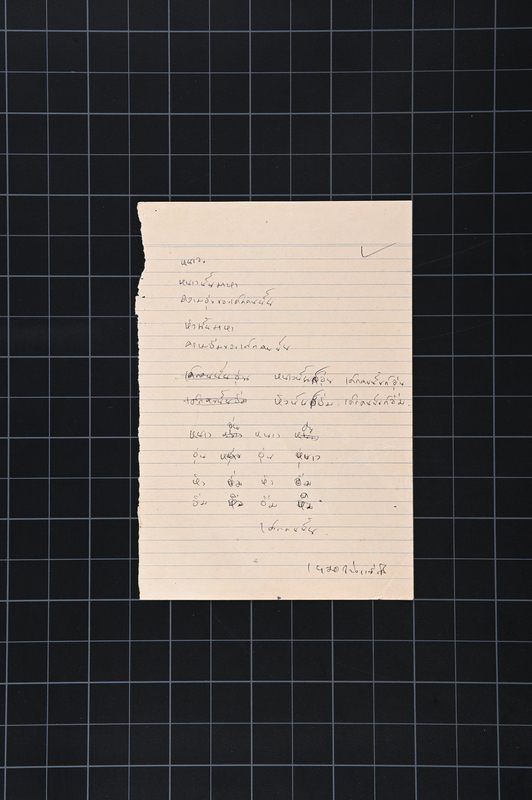 หนาว.
หนาวนั้นมาหา
ความอุ่นของเด็กคนนั้น
หิวนั้นมาหา
ความอิ่มของเด็กคนนั้น
เด็กคนนั้นอุ่น หนาวนั้นก็อุ่น เด็กคนนั้นก็อุ่น
เด็กคนนั้นอิ่ม หิวนั้นก็อิ่ม เด็กคนนั้นก็อิ่ม
หนาว อุ่น หนาว
อุ่น หนาว อุ่น หนาว
หิว อิ่ม หิว อิ่ม
อิ่ม หิว อิ่ม หิว
เด็กคนนั้น